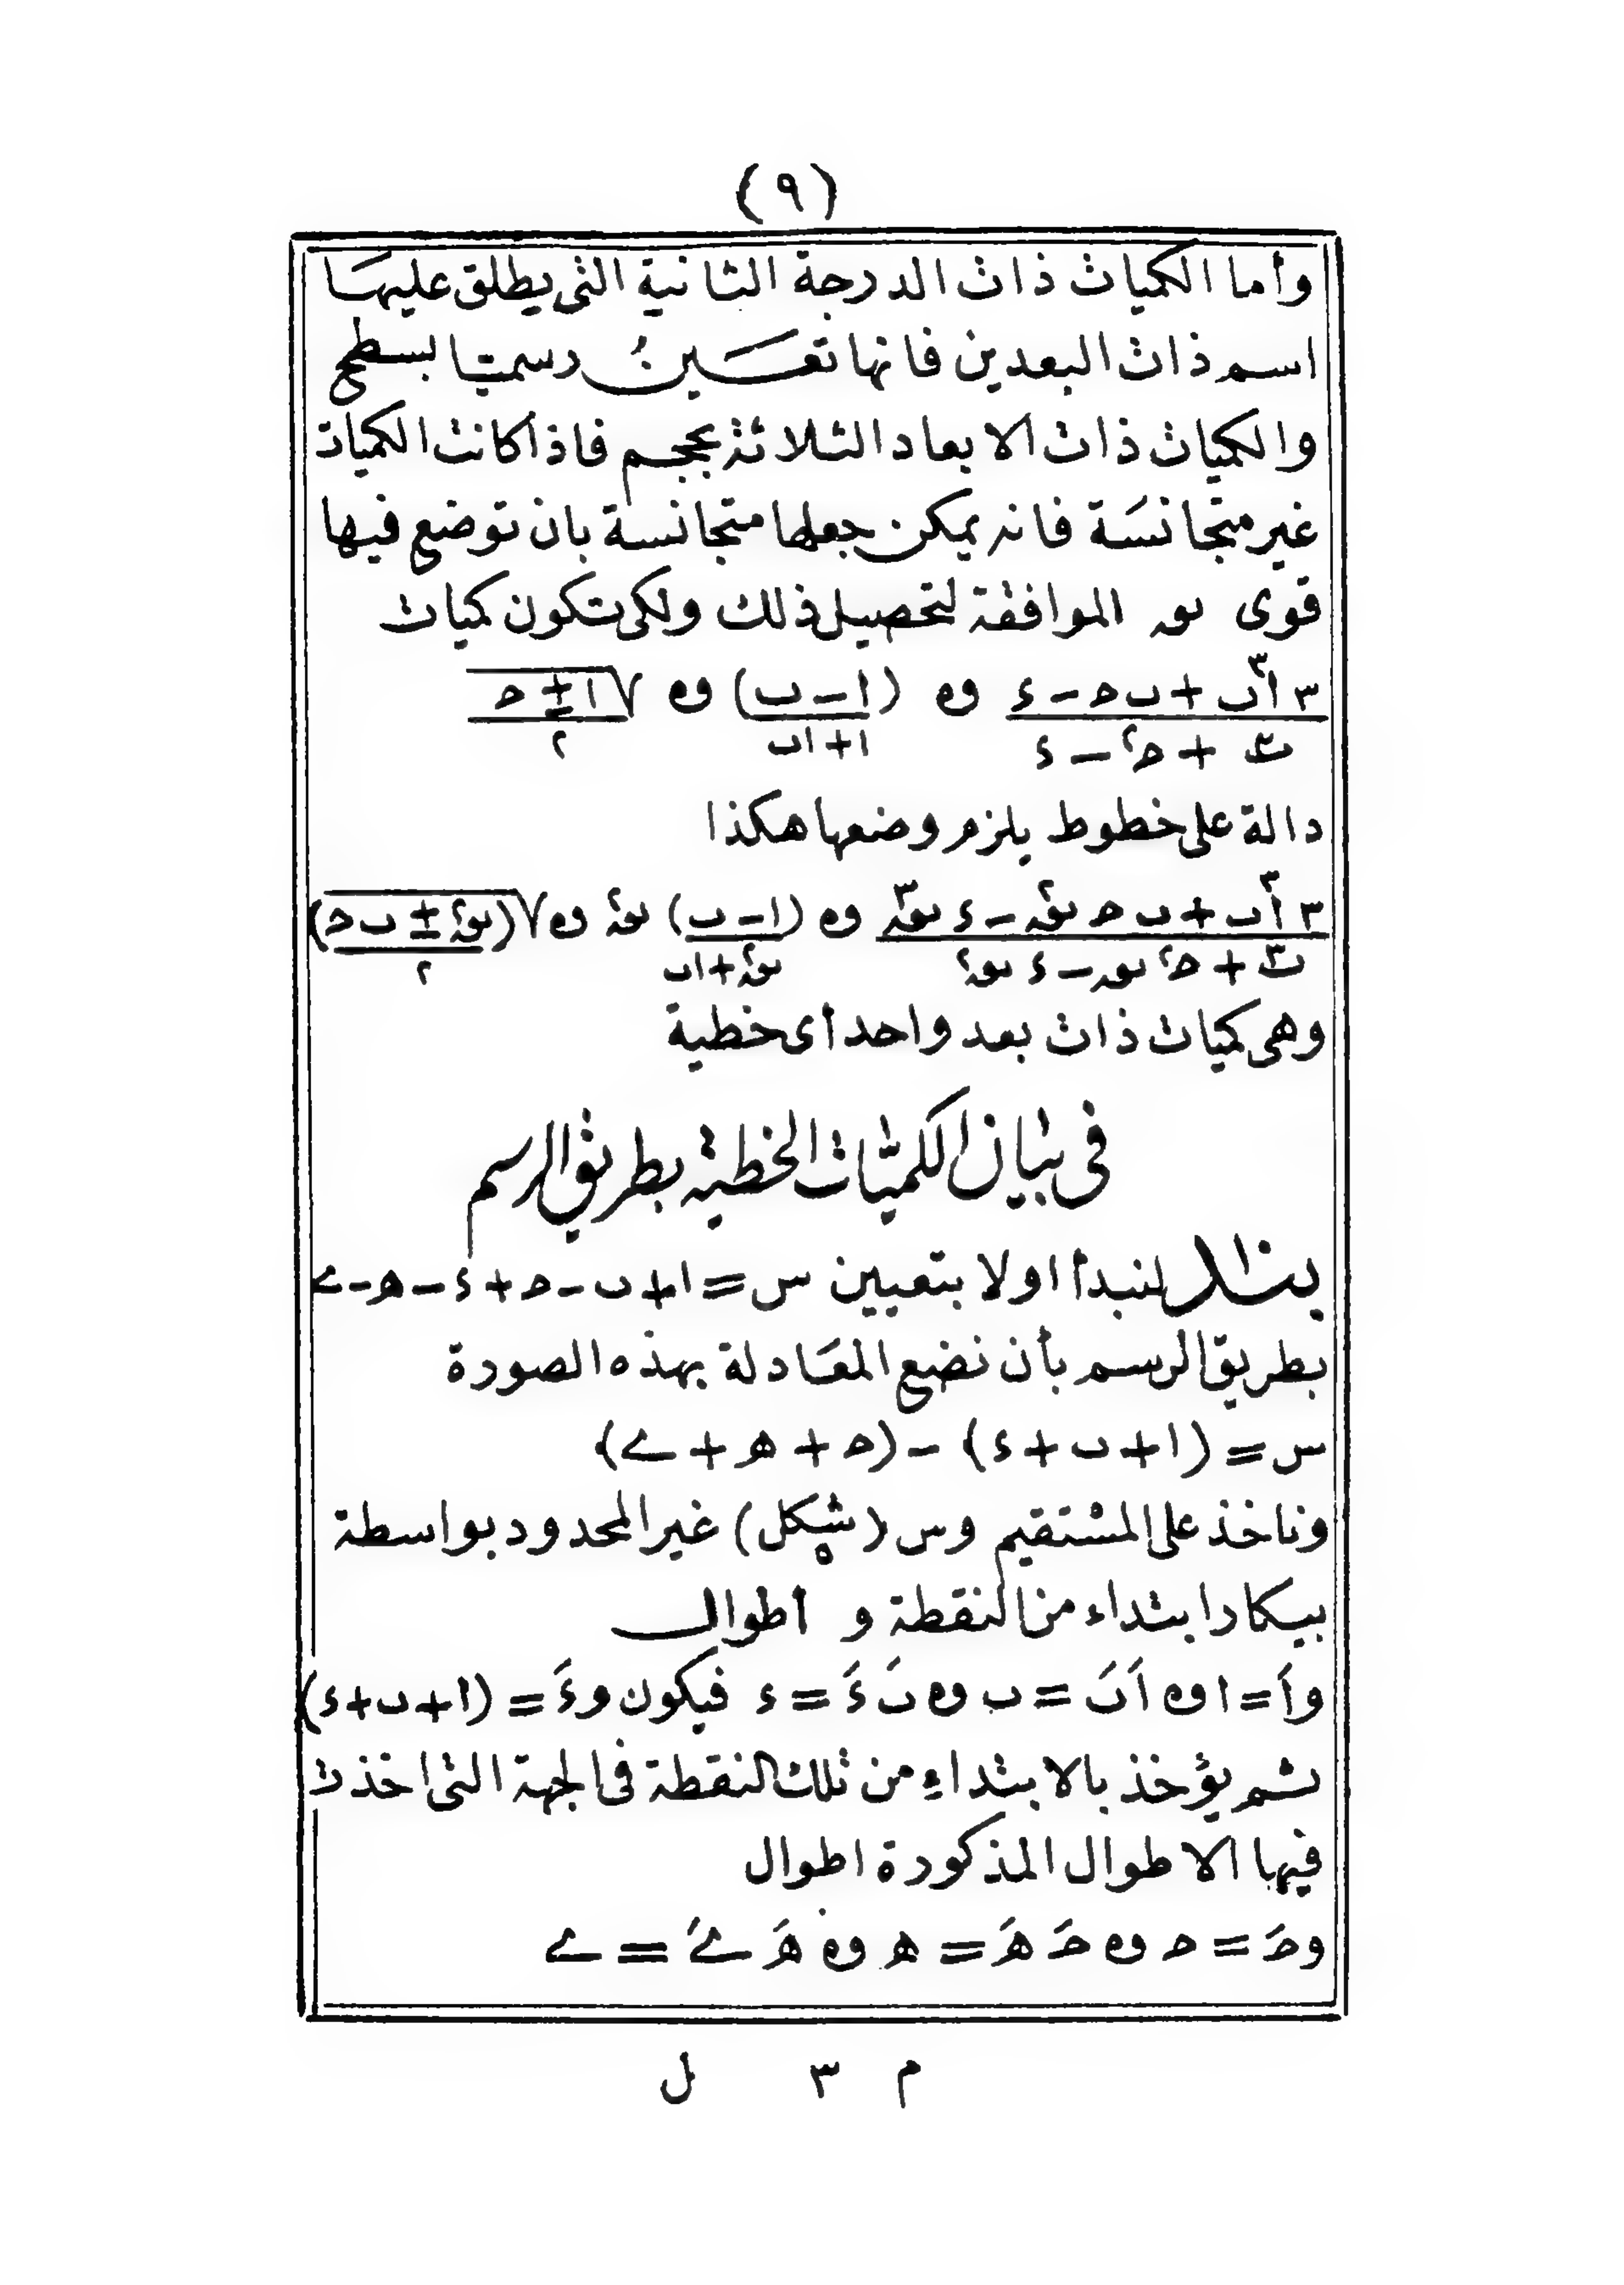 (٩)
وأما الكميات ذات الدرجة الثانية التى يطلق عليها
اسم ذات البعدين فانها تعين رسميا بسطح
والكميات ذات الابعاد الثلاثة بحجم فاذا كانت الكميات
غير متجانسة فانه يمكن جعلها متجانسة بان توضع فيها
قوى ىه الموافقة لتحصيل ذلك ولكى تكون كميات
٣ أ٣ب + ب ح - ء وه (ا - ب) وه √ا ± ح
ب٣ + ح٢ - ء ا + اب ٢
دالة على خطوط يلزم وضعها هكذا
٣ أ٣ب + ب ح ىه٢ - ء ىه٣ وه (ا - ب) ىه٢ وه √(ىه٢ ± ب ح)
ب٣ + ح٢ ىه - ء ىه٢ ىه٢ + اب ٢
وهى كميات ذات بعد واحد أى خطية
فى بيان الكميات الخطية بطريق الرسم
لنبدأ اولا بتعيين س = ا + ب - ح + ء - ه - ے
بطريق الرسم بأن نضع المعادلة بهذه الصورة
س = (ا + ب + ء) - (ح + ه + ے)
وناخذ على المستقيم وس (شكل ٥) غير المحدود بواسطة
بيكار ابتداء من النقطة و اطوال
وأَ = ا وه أَبَ = ب وه بَ ءَ = ء فيكون وءَ = (ا + ب + ء)
ثم يؤخذ بالابتداء من تلك النقطة فى الجهة التى اخذت
فيها الاطوال المذكورة اطوال
وحَ = ح وه حَ هَ = ه وه هَ ےَ = ے
م ٣ ل